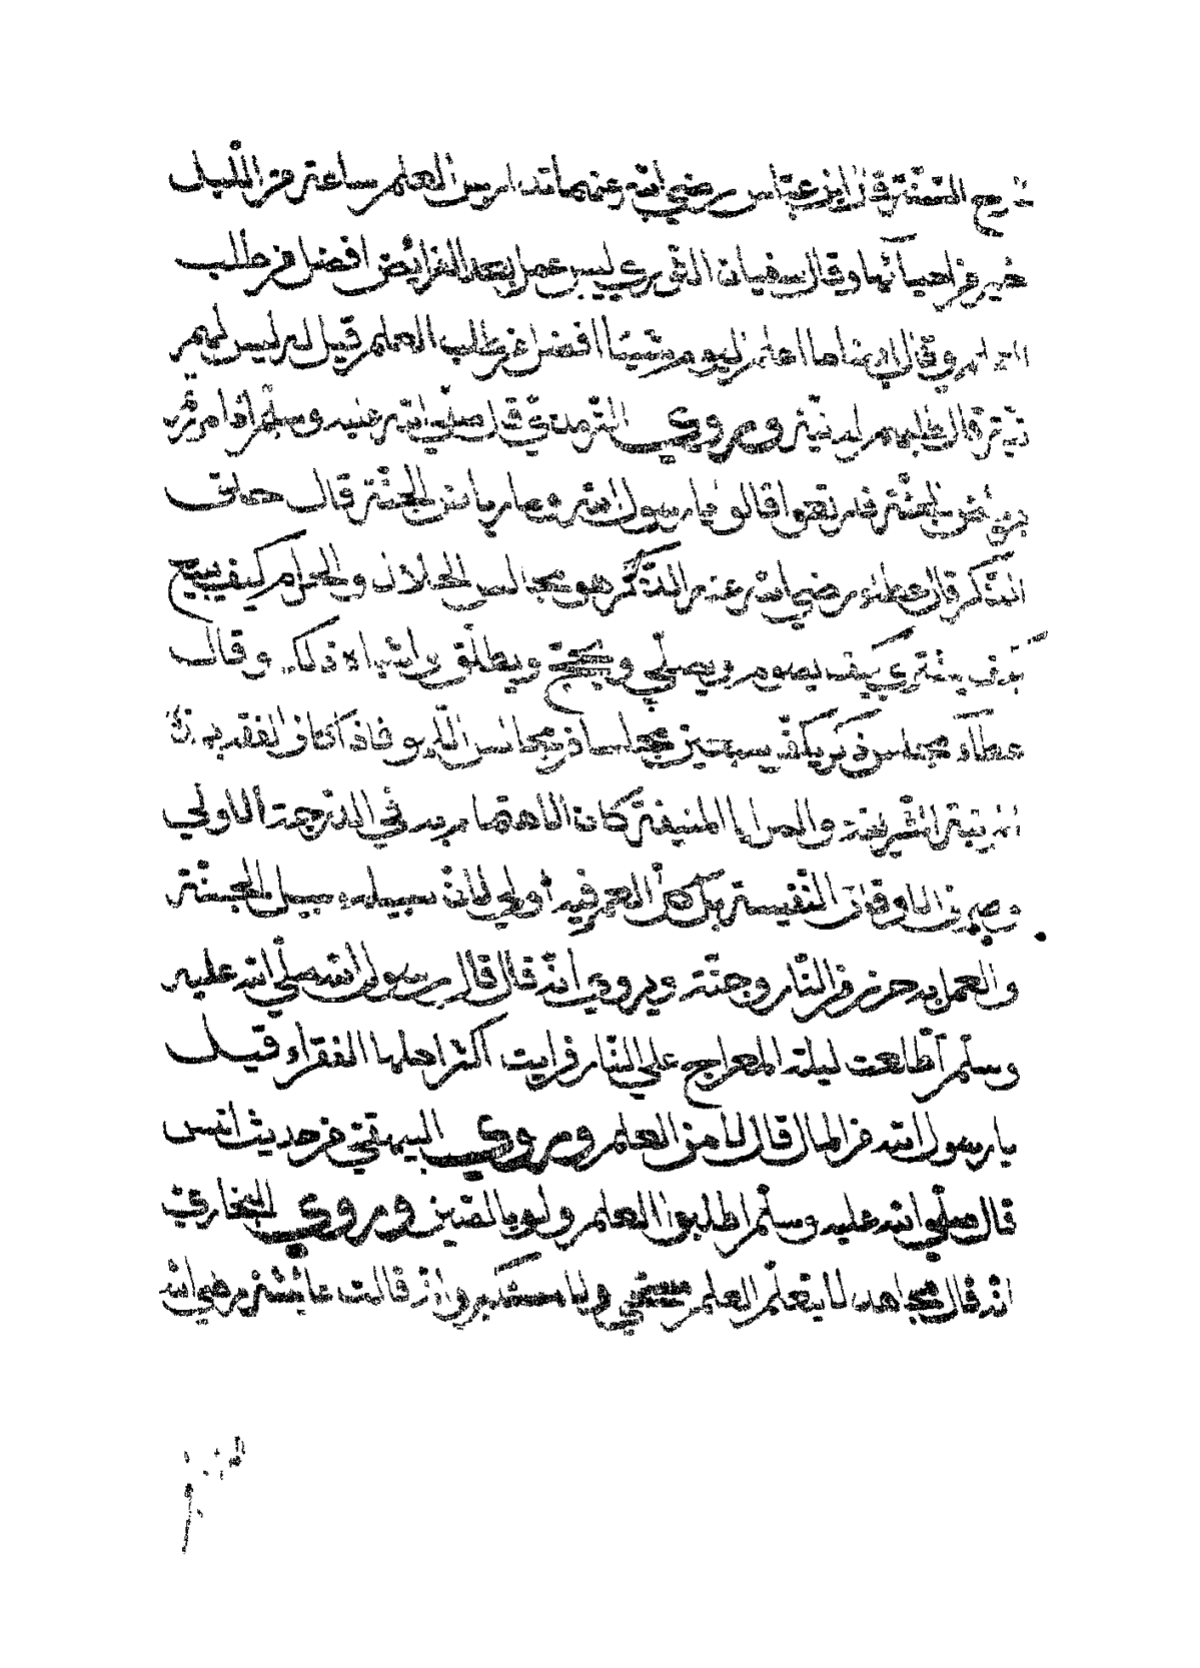 شرح السنة قال ابن عباس رضي الله عنهما تدارس العلم ساعة من الليل
خير من احيائها وقال سفيان الثوري ليس عمل بعد الفرائض افضل من طلب
العلم وقال ايضا ما اعلم اليوم شيئا افضل من طلب العلم قيل له ليس لهم
نية قال طلبهم له نية وروي الترمذي قال صلى الله عليه وسلم اذا مررتم
برياض الجنة فارتعوا قالوا يا رسول الله وما رياض الجنة قال حلق
الذكر قال عطاء رضي الله عنه الذكر هو مجالس الحلال والحرام كيف يبيع
كيف يشتري كيف يصوم ويصلي ويحج ويطلق واشباه ذلك وقال
عطاء مجلس ذكر يكفر سبعين مجلسا من مجالس اللهو فاذا كان الفقه بهذه
المرتبة الشريفة والمزايا المنيفة كان الاهتمام به في الدرجة الاولي
وصرف الاوقات النفيسة بل كل العمر فيه أولي لان سبيله سبيل الجنة
والعمل به حرز من النار وجنة ويروي انه قال قال رسول الله صلي الله عليه
وسلم اطلعت ليلة المعراج علي النار فرايت اكثر اهلها الفقراء قيل
يا رسول الله من المال قال لا من العلم وروي البيهقي من حديث انس
قال صلي الله عليه وسلم اطلبوا العلم ولو بالصين وروي البخاري
انه قال مجاهد لا يتعلم العلم مستحي ولا مستكبر وانه قالت عائشة رضي الله